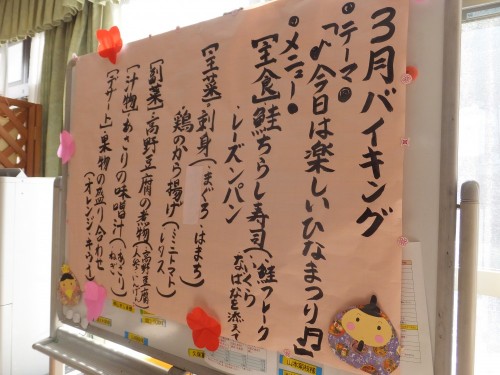 3月バイキング
●テーマ●
「♪今日は楽しいひなまつり♪」
●メニュー●
[主食]鮭ちらし寿司(鮭フレーク
いくら
なばなを添えて
・レーズンパン
[主菜]・刺身(・まぐろ・はまち)
・鶏のから揚げ(ミニトマト
レタス
[副菜]・高野豆腐の煮物(高野豆腐
人参
[汁物]・あさりの味噌汁(あさり
ねぎ
[デザート]・果物の盛り合わせ
(オレンジ・キウイ)